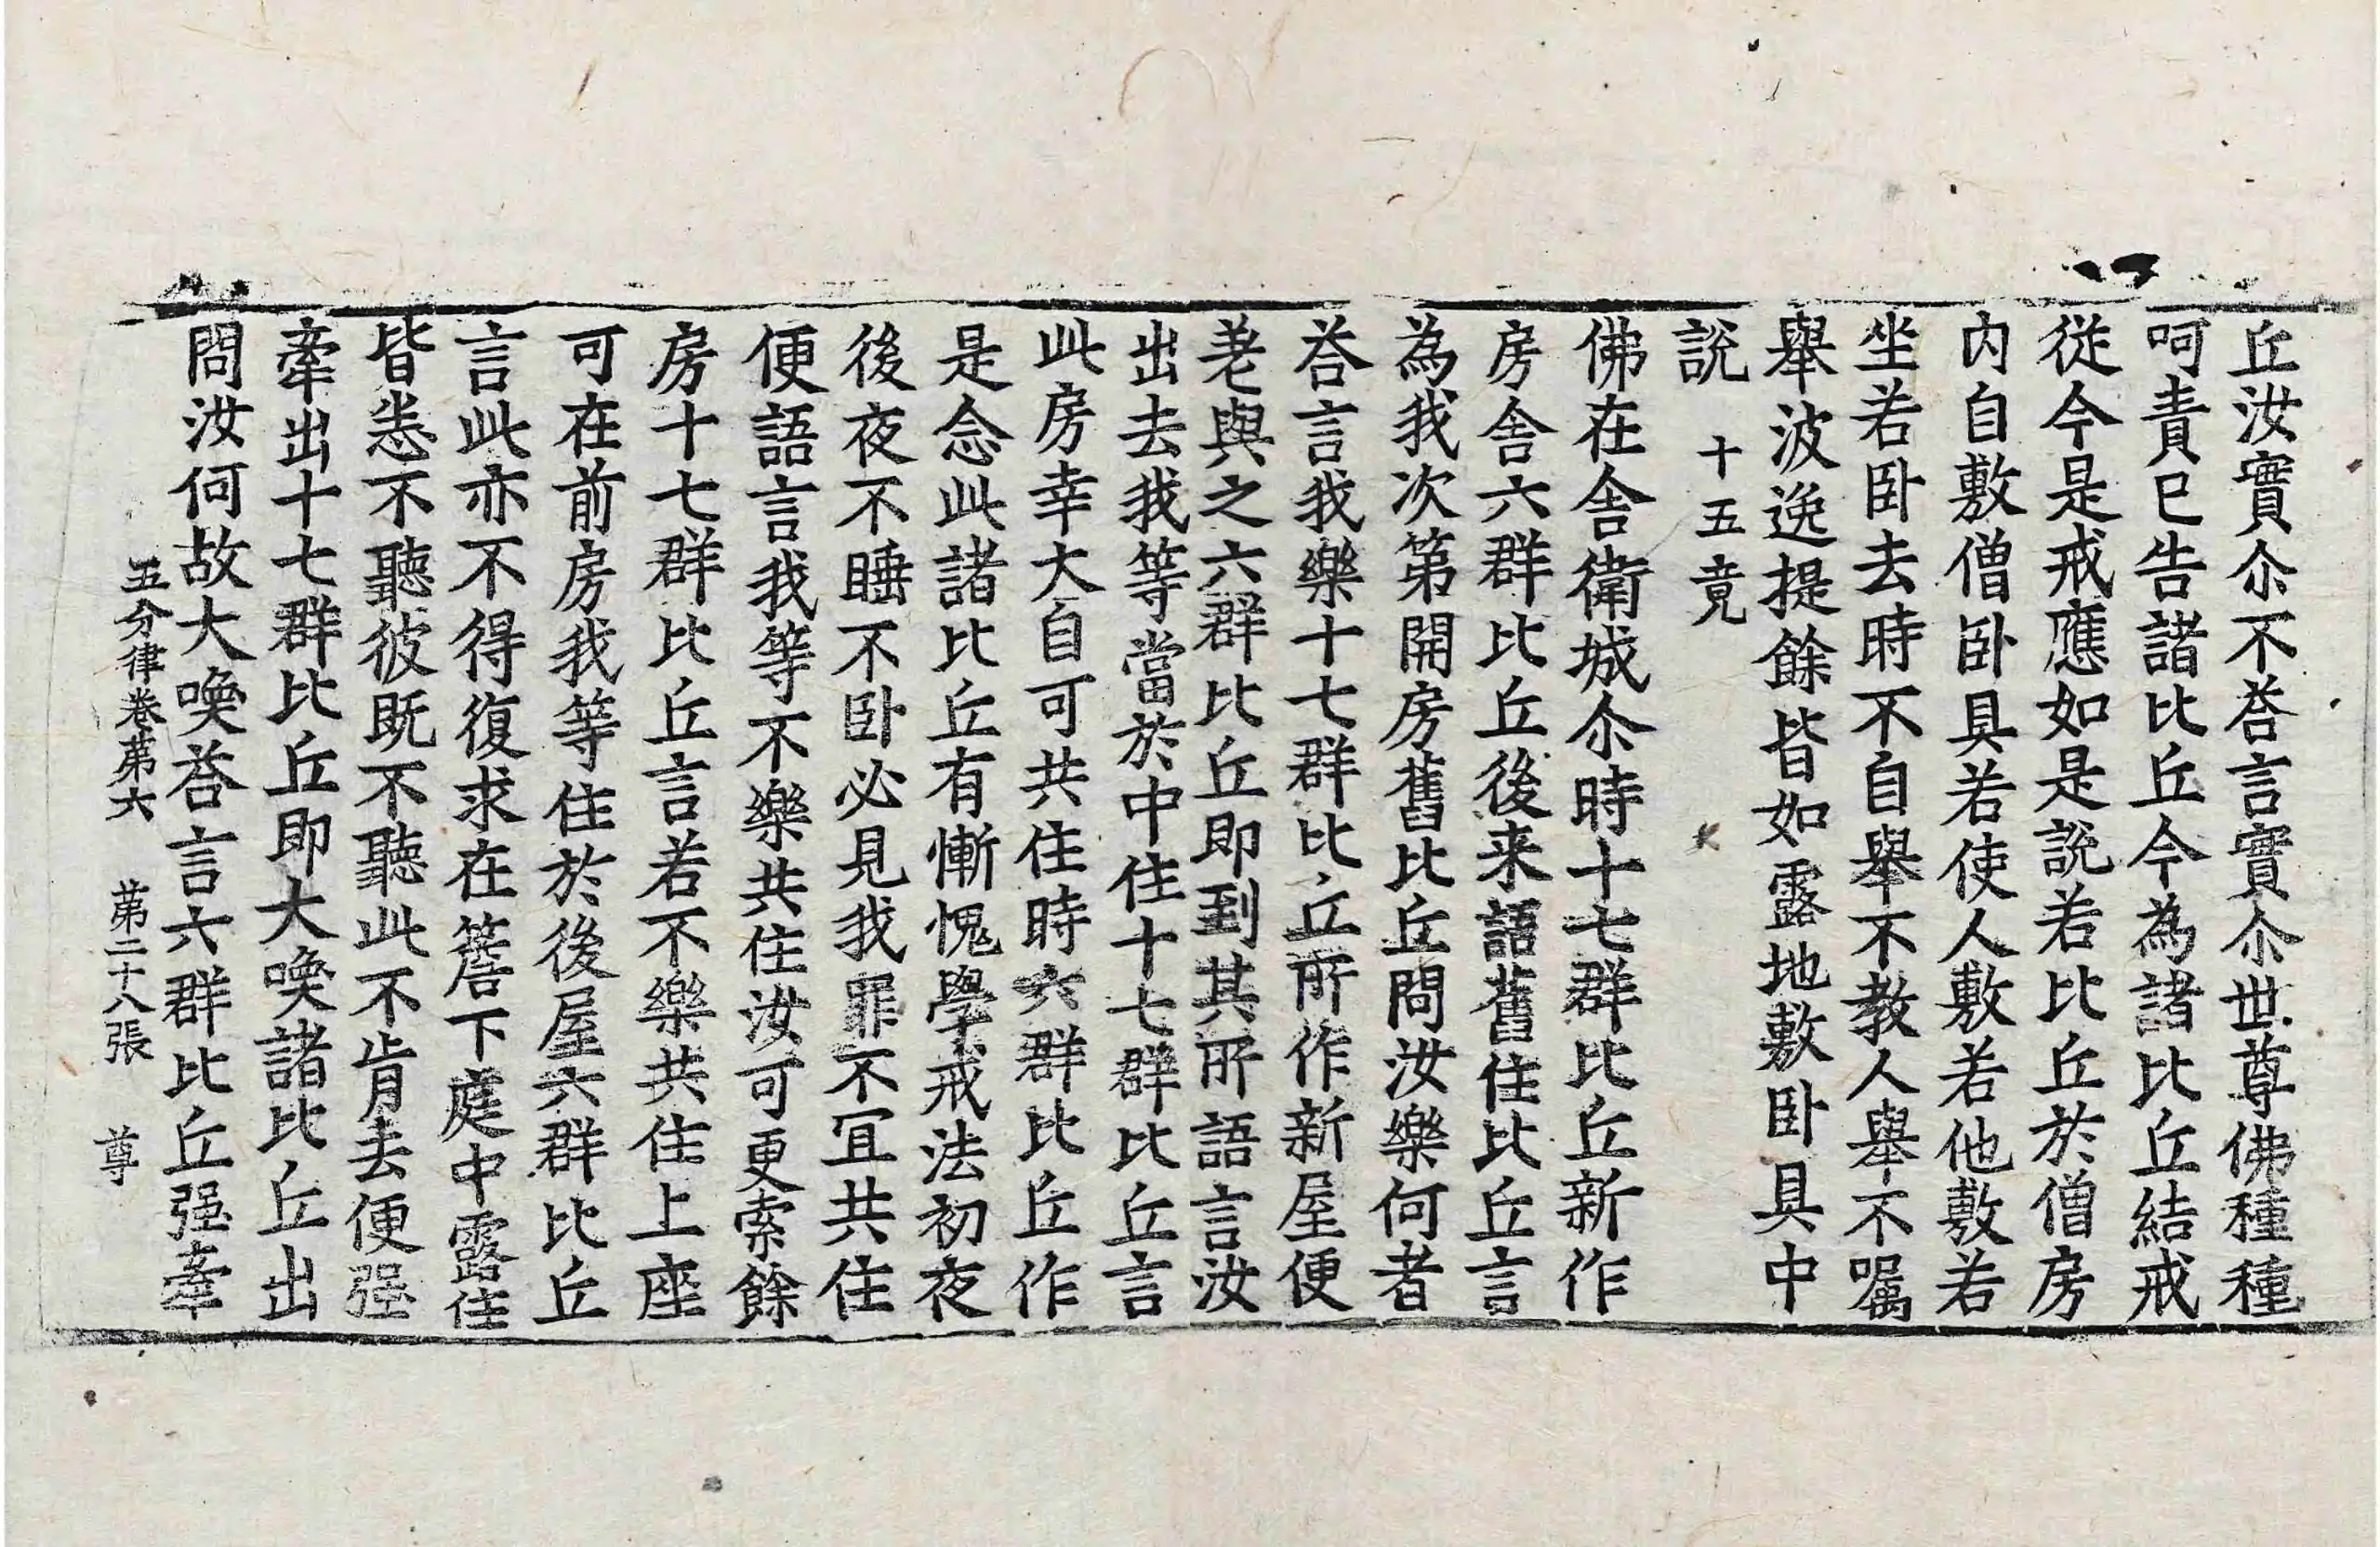 丘汝實尒不荅言實尒世尊佛種種
呵責已告諸比丘今為諸比丘結戒
従今是戒應如是說若比丘於僧房
内自敷僧卧具若使人敷若他敷若
坐若卧去時不自舉不教人舉不囑
舉波逸提餘皆如露地敷卧具中
說 十五竟
佛在舍衛城尒時十七群比丘新作
房舍六群比丘後来語舊住比丘言
為我次第開房舊比丘問汝樂何者
荅言我樂十七群比丘所作新屋便
差與之六群比丘即到其所語言汝
出去我等當於中住十七群比丘言
此房幸大自可共住時六群比丘作
是念此諸比丘有慚愧學戒法初夜
後夜不睡不卧必見我罪不冝共住
便語言我等不樂共住汝可更索餘
房十七群比丘言若不樂共住上座
可在前房我等住於後屋六群比丘
言此亦不得復求在簷下庭中露住
皆悉不聽彼既不聽此不肯去便强
牽出十七群比丘即大喚諸比丘出
問汝何故大喚荅言六群比丘强牽
五分律卷第六 第二十八張 尊